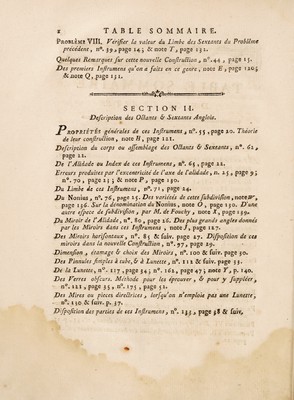 2 TABLE SOMMAIRE.
PROBLÈME VIII. Vérifier la valeur du Limbe des Sextants du Problème
précédent, n°. 39, page 14; & note T, page 151.
Quelques Remarques sur cette nouvelle Construction, n°. 44, page 15.
Des premiers Instrumens qu'on a faits en ce genre, note E, page 120;
& note Q, page 131.
SECTION II.
Description des Octants & Sextants Anglois.
PROPRIÉTÉS générales de ces Instrumens, n°. 55, page 20. Théorie
de leur construction, note H, page 121.
Description du corps ou assemblage des Octants & Sextants, n°. 62,
page 22.
De l'Alidade ou Index de ces Instrumens, n°. 65, page 22.
Erreurs produites par l'excentricité de l'axe de l'alidade, n. 25, page 9;
n°. 70, page 23; & note P, page 130.
Du Limbe de ces Instrumens, n°. 71, page 24.
Du Nonius, n°. 76, page 25. Des variétés de cette subdivision, note
page 136. Sur la dénomination du Nonius, note O, page 130. D'une
autre espece de subdivision, par M. de Fouchy, note X, page 139.
Du Miroir de l'Alidade, n°. 80, page 26. Des plus grands angles donnés
par les Miroirs dans ces Instrumens, note J, page 127.
Des Miroirs horisontaux, n°. 85 & suiv. page 27. Disposition de ces
miroirs dans la nouvelle Construction, n°. 97, page 29.
Dimension, étamage & choix des Miroirs, n°. 100 & suiv. page 30.
Des Pinnules simples à tube, & à Lunette, n°. 112 & suiv. page 33.
De la Lunette, n°. 117, page 34; n°. 162, page 47; note Y, p. 140.
Des Verres obscurs. Méthode pour les éprouver, & pour y suppléer,
n°. 121, page 35, n°. 175, page 51.
Des Mires ou pieces directrices, lorsqu'on n'emploie pas une Lunette,
n°. 130 & suiv. p. 37.
Disposition des parties de ces Instrumens, n°. 135, page 38 & suiv.